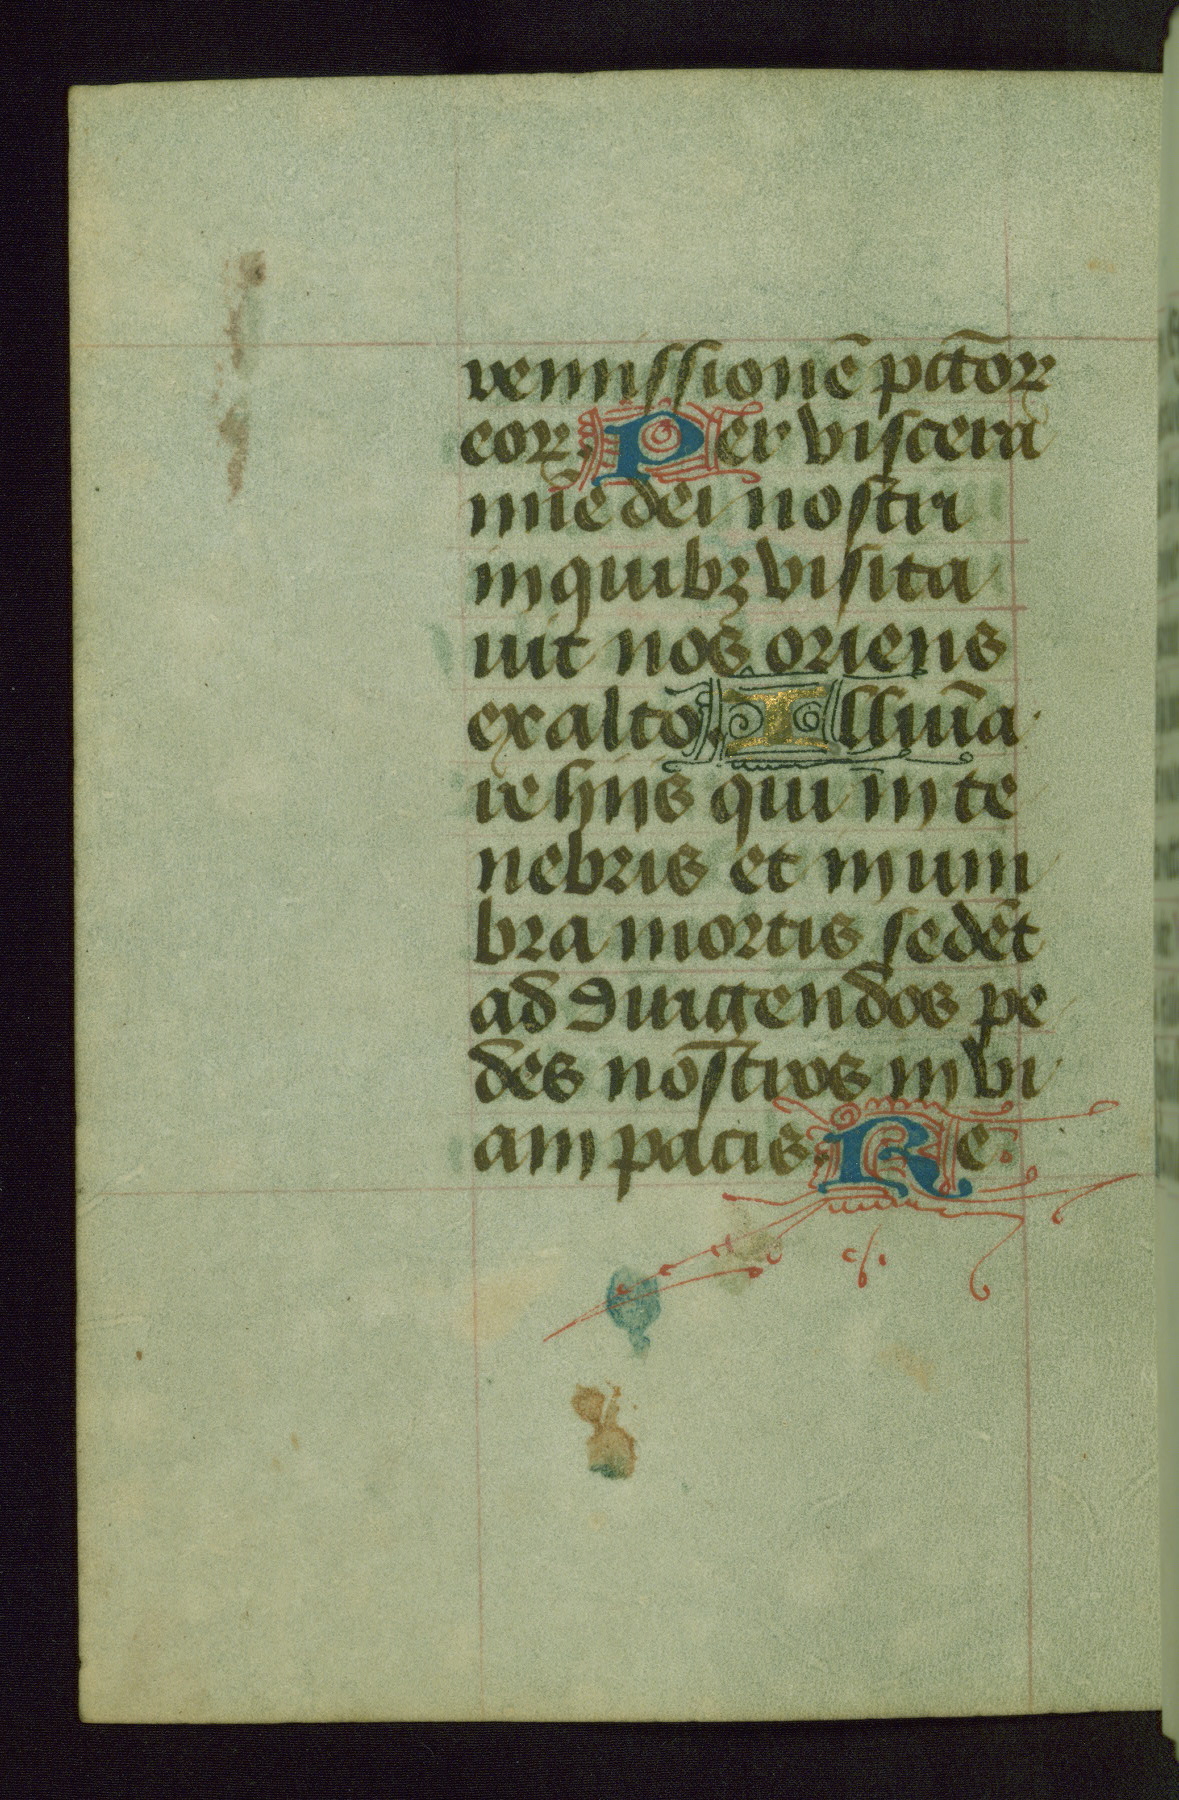 remissionē pctōꝝ
eoꝝ Per viscera
mīe dei nostri
in quibꝫ visita
uit nos oriens
ex alto Illumīa
re hijs qui in te
nebris et in um
bra mortis sedēt
ad ꝯuigendos pe
des nostros in vi
am pacis. Re.